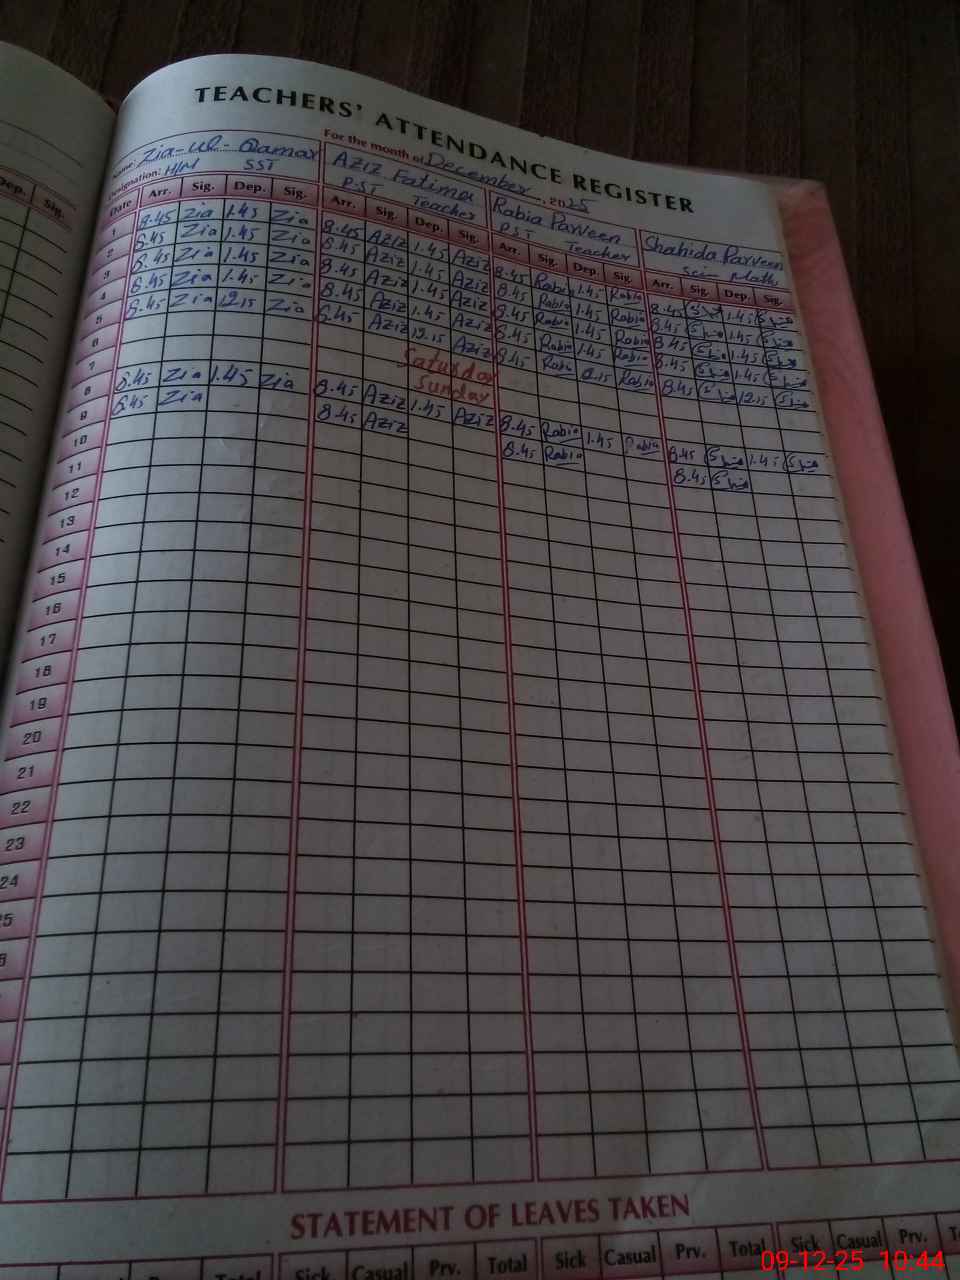 TEACHERS' ATTENDANCE REGISTER
For the month of December, 2025
Name: Zia-ul-Qamar
Designation: H/M SST
Aziz Fatima
PST Teacher
Rabia Parveen
PST Teacher
Shahida Parveen
Sci Math
Date Arr. Sig. Dep. Sig. Arr. Sig. Dep. Sig. Arr. Sig. Dep. Sig. Arr. Sig. Dep. Sig.
1 8.45 Zia 1.45 Zia 8.45 Aziz 1.45 Aziz 8.45 Rabia 1.45 Rabia 8.45 1.45
2 8.45 Zia 1.45 Zia 8.45 Aziz 1.45 Aziz 8.45 Rabia 1.45 Rabia 8.45 1.45
3 8.45 Zia 1.45 Zia 8.45 Aziz 1.45 Aziz 8.45 Rabia 1.45 Rabia 8.45 1.45
4 8.45 Zia 1.45 Zia 8.45 Aziz 1.45 Aziz 8.45 Rabia 1.45 Rabia 8.45 1.45
5 8.45 Zia 12.15 Zia 8.45 Aziz 12.15 Aziz 8.45 Rabia Rabia 8.45 12.15
6 Saturday
7 Sunday
8 8.45 Zia 1.45 Zia 8.45 Aziz 1.45 Aziz 8.45 Rabia 1.45 Rabia 8.45 1.45
9 8.45 Zia 8.45 Aziz 8.45 Rabia 8.45
10
11
12
13
14
15
16
17
18
19
20
21
22
23
24
STATEMENT OF LEAVES TAKEN
Total Sick Casual Prv. Total Sick Casual Prv. Total Sick Casual Prv.
Dep. Sig.
09-12-25 10:44